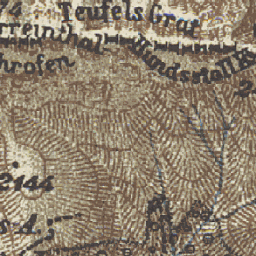 74
Teufels Grat
rreinthal
Wundsstall K
hrofen
2
2144
s d.